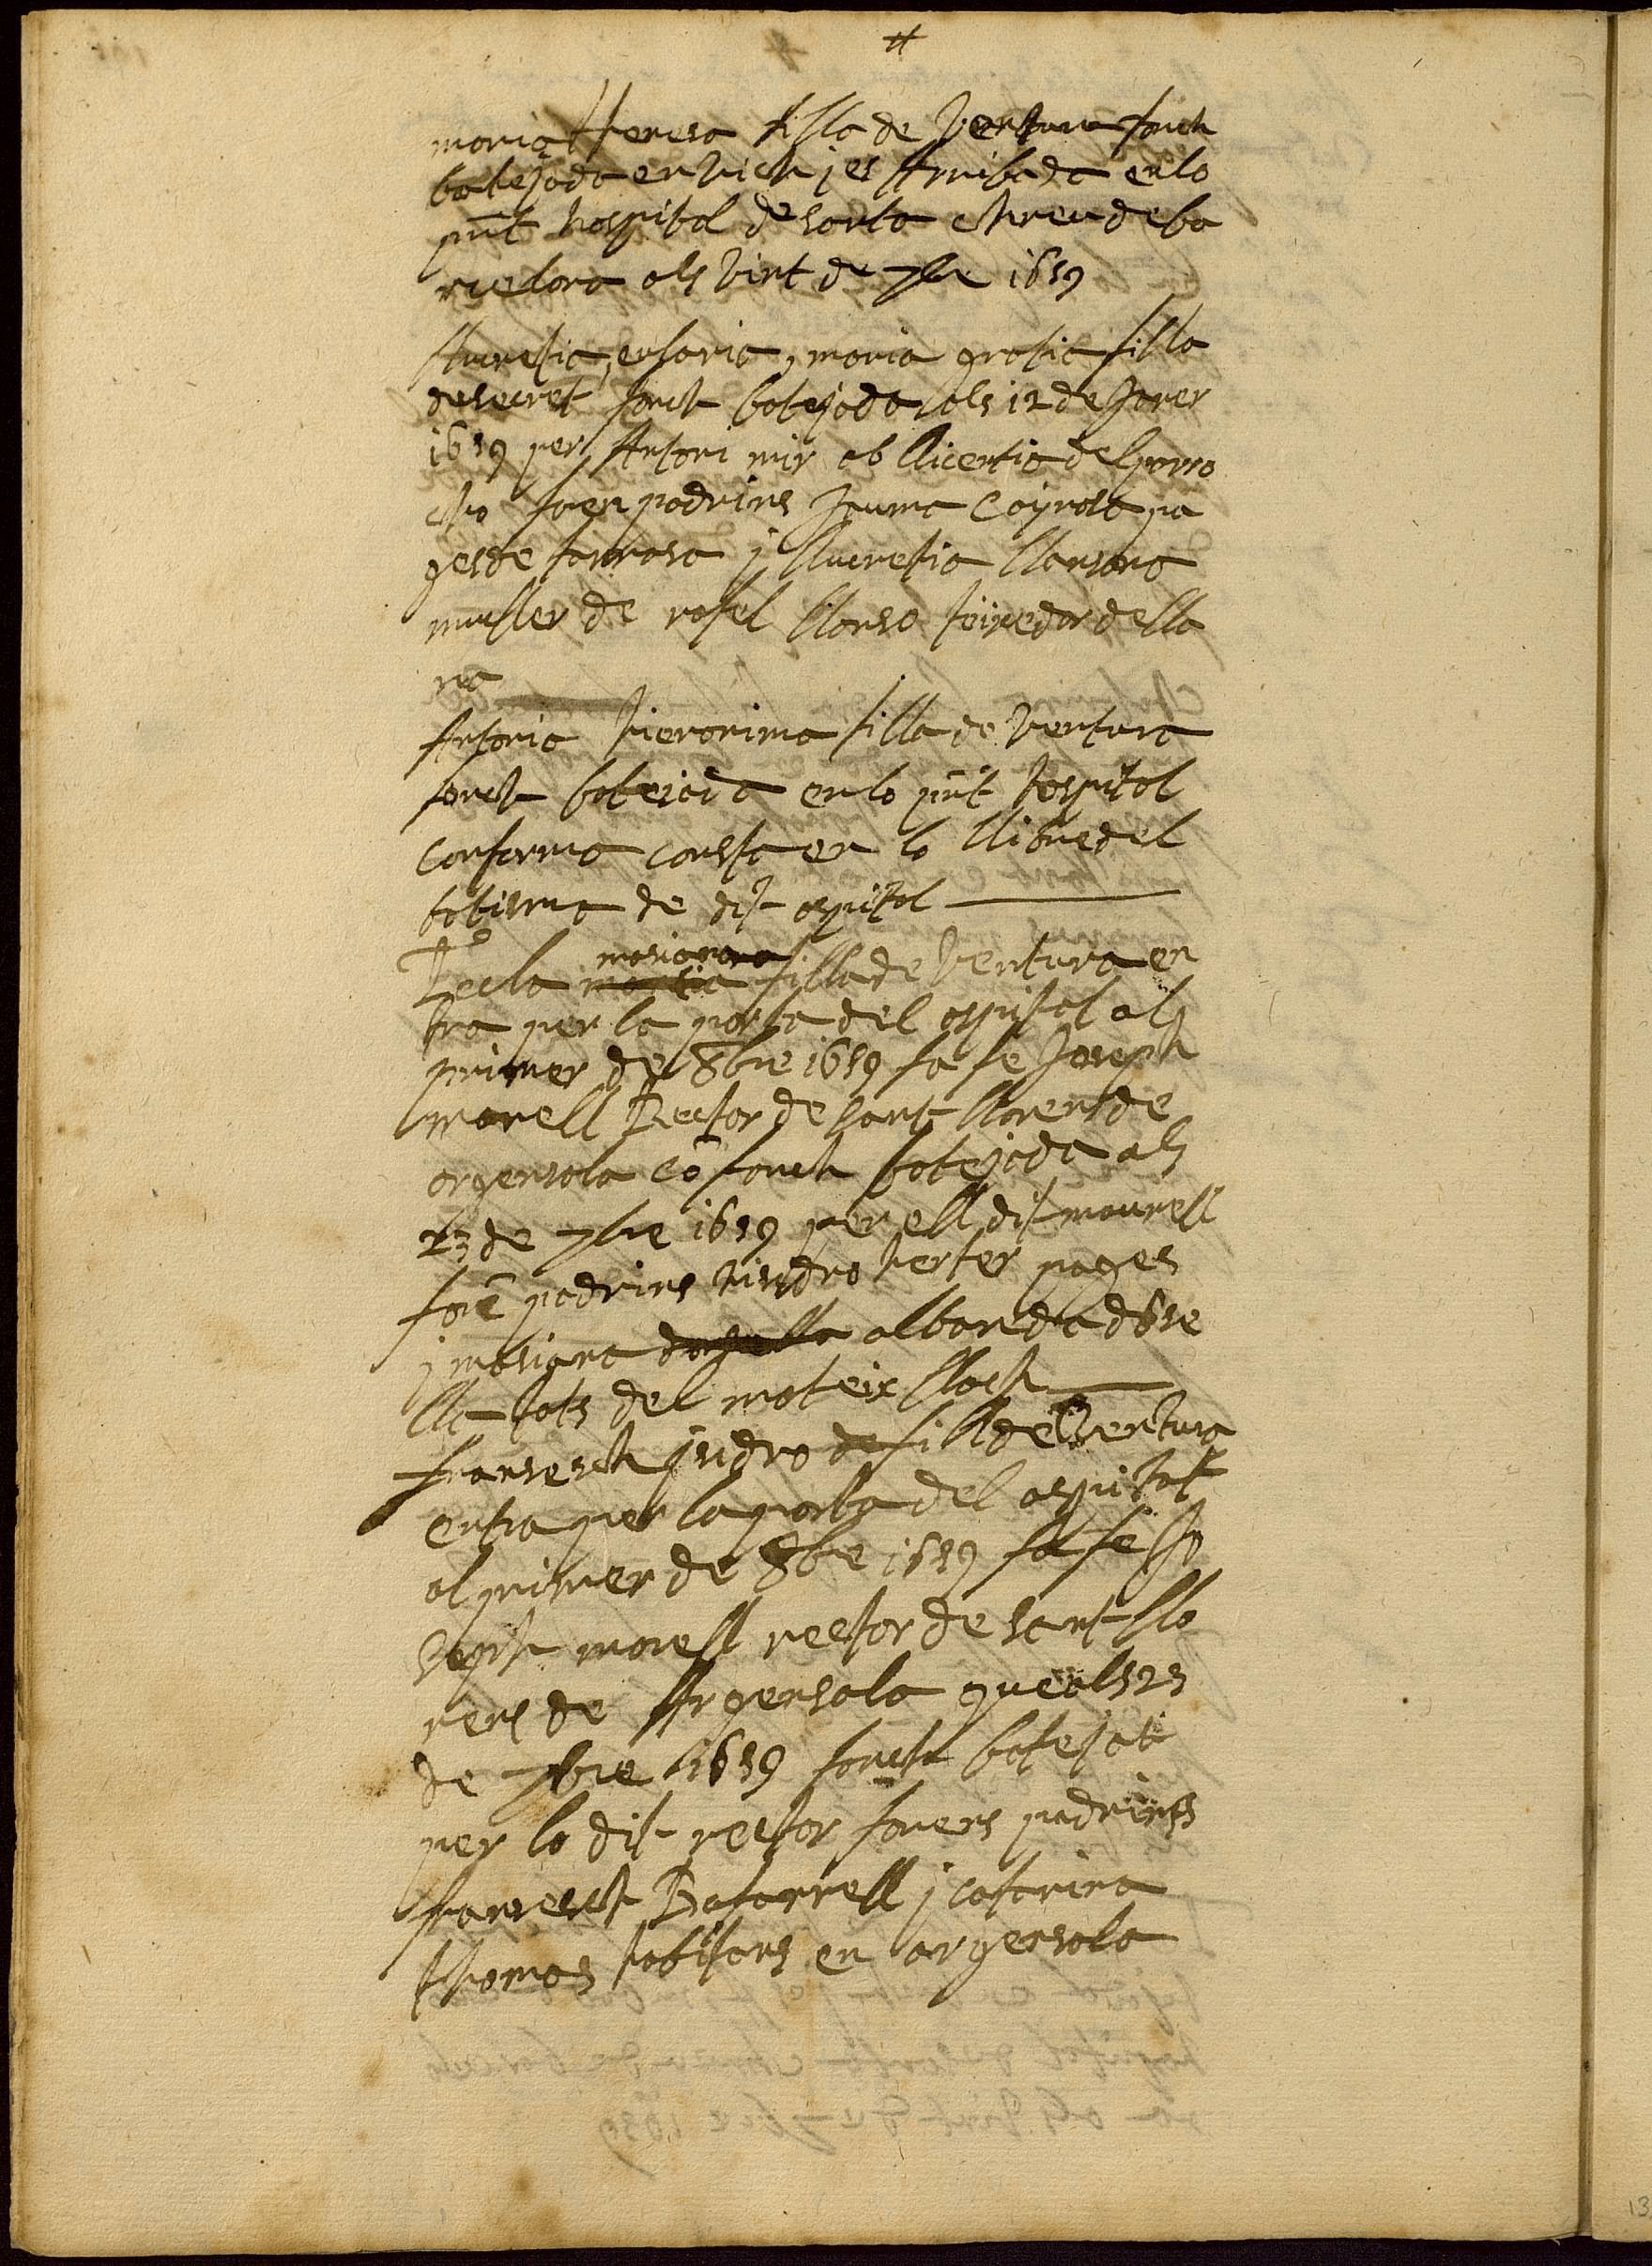 #
maria Theresa filla de Ventura fonch
batejada en Vich j es Arribada en lo
pnt hospital de santa Chreu de ba
rcelona als Vint de 7bre 1659
Llucretia, eufaria, maria gratia filla
de secret fonch batejada als 12 de Janer
1659 per Antoni mir ab llicentia del parro
cho foren padrins Jauma Coÿrosa pa
ges de tarrasa j Llucretia Llansana
muller de rafel llansa teixedor de lla
na
Antonia hieronima filla de Ventura
fonch batejada en lo pnt hospital
conforma consta en lo llibre del
batisma de dit ospital
Tecla maria mariana filla de Ventura en
tra per la porta del ospital als
primer de 8bre 1659 fa fe Joseph
morell Rector de sant Llorens de
argensola co fonch batejada als
23 de 7bre 1659 per ell dit mourell
fore padrins hisidro Verter pages
j mariana donsella albareda dose
lla tots del mateix lloch
fransesch jsidro de fill de Ventura
entra per la porta del ospital
al primer de 8bre 1659 fa fe Jo
seph morell rector de sant Llo
rens de Argensala que als 25
de 7bre 1659 fonch batejat
per lo dit rector forens padrins
fransesch Batarrell j catarina
thomas habitans en argensola
13